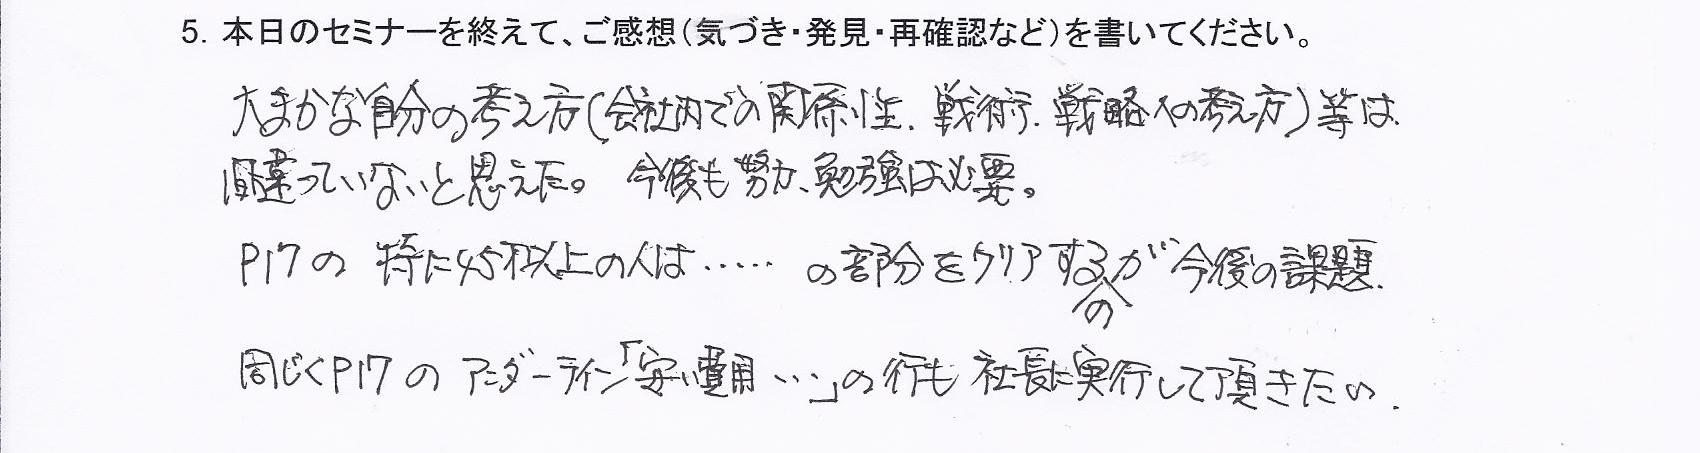 5. 本日のセミナーを終えて、ご感想（気づき・発見・再確認など）を書いてください。
大まかな自分の考え方(会社内での関係性、戦術、戦略への考え方)等は
間違っていないと思えた。今後も努力、勉強は必要。
P17の 特に45才以上の人は……の部分をクリアするのが今後の課題.
同じくP17の アンダーライン「安い費用…」の行も 社長に実行して頂きたい.